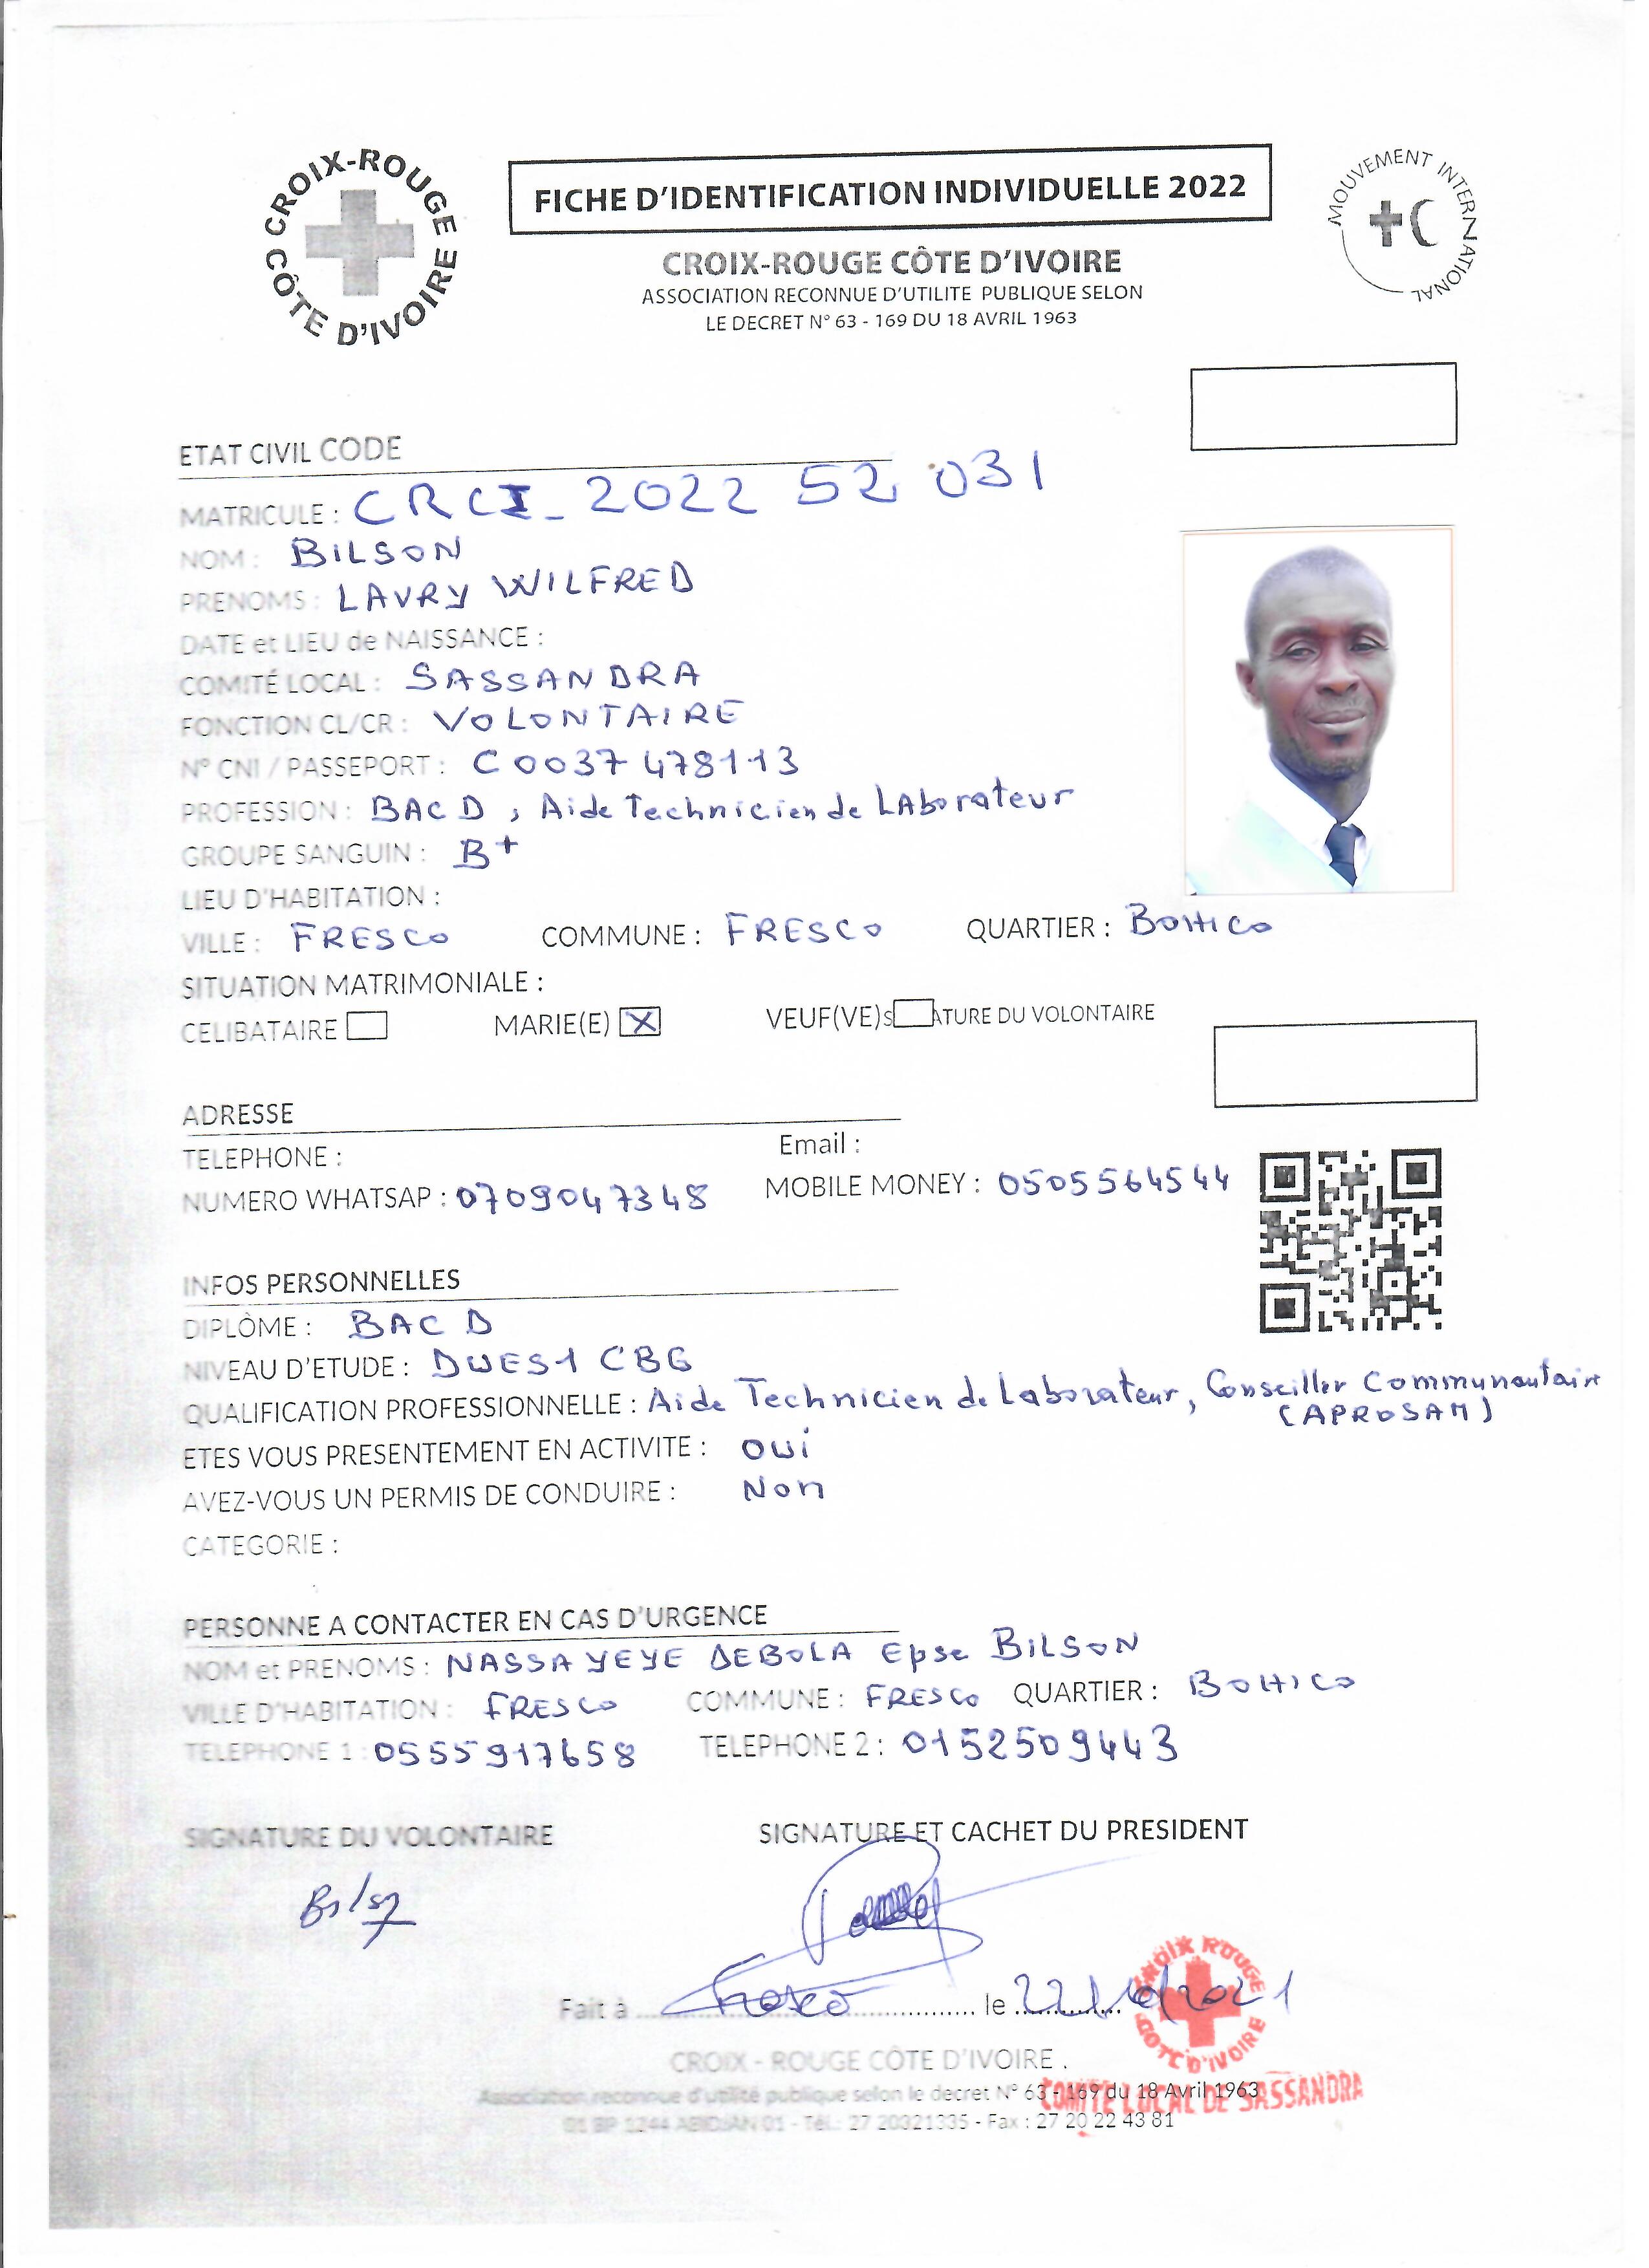 CROIX-ROUGE CÔTE D'IVOIRE
FICHE D'IDENTIFICATION INDIVIDUELLE 2022
MOUVEMENT INTERNATIONAL
CROIX-ROUGE CÔTE D'IVOIRE
ASSOCIATION RECONNUE D'UTILITE PUBLIQUE SELON
LE DECRET N° 63 - 169 DU 18 AVRIL 1963
ETAT CIVIL CODE
MATRICULE : CRCI_ 2022 52 031
NOM : BILSON
PRENOMS : LAVRY WILFRED
DATE et LIEU de NAISSANCE :
COMITÉ LOCAL : SASSANDRA
FONCTION CL/CR : VOLONTAIRE
N° CNI / PASSEPORT : C 0037 478113
PROFESSION : BAC D , Aide Technicien de LAborateur
GROUPE SANGUIN : B+
LIEU D'HABITATION :
VILLE : FRESCO COMMUNE : FRESCO QUARTIER : BOHICO
SITUATION MATRIMONIALE :
CELIBATAIRE MARIE(E) X VEUF(VE)S ATURE DU VOLONTAIRE
ADRESSE
TELEPHONE : Email :
NUMERO WHATSAP : 0709047348 MOBILE MONEY : 0505564544
INFOS PERSONNELLES
DIPLÔME : BAC D
NIVEAU D'ETUDE : DUES1 CBG
QUALIFICATION PROFESSIONNELLE : Aide Technicien de Laborateur, Conseiller Communautaire
(APROSAM)
ETES VOUS PRESENTEMENT EN ACTIVITE : OUi
AVEZ-VOUS UN PERMIS DE CONDUIRE : Non
CATEGORIE :
PERSONNE A CONTACTER EN CAS D'URGENCE
NOM et PRENOMS : NASSA YEYE DEBOLA Epse BILSON
VILLE D'HABITATION : FRESCO COMMUNE : FRESCO QUARTIER : BOHICO
TELEPHONE 1 : 0555917658 TELEPHONE 2 : 0152509443
SIGNATURE DU VOLONTAIRE SIGNATURE ET CACHET DU PRESIDENT
Fait à Fresco le 22/ /2021
CROIX ROUGE COTE D'IVOIRE
COMITE LOCAL DE SASSANDRA
CROIX - ROUGE CÔTE D'IVOIRE .
Association reconnue d'utilité publique selon le decret N° 63 - 169 du 18 Avril 1963
01 BP 1244 ABIDJAN 01 - Tél.: 27 20321335 - Fax : 27 20 22 43 81